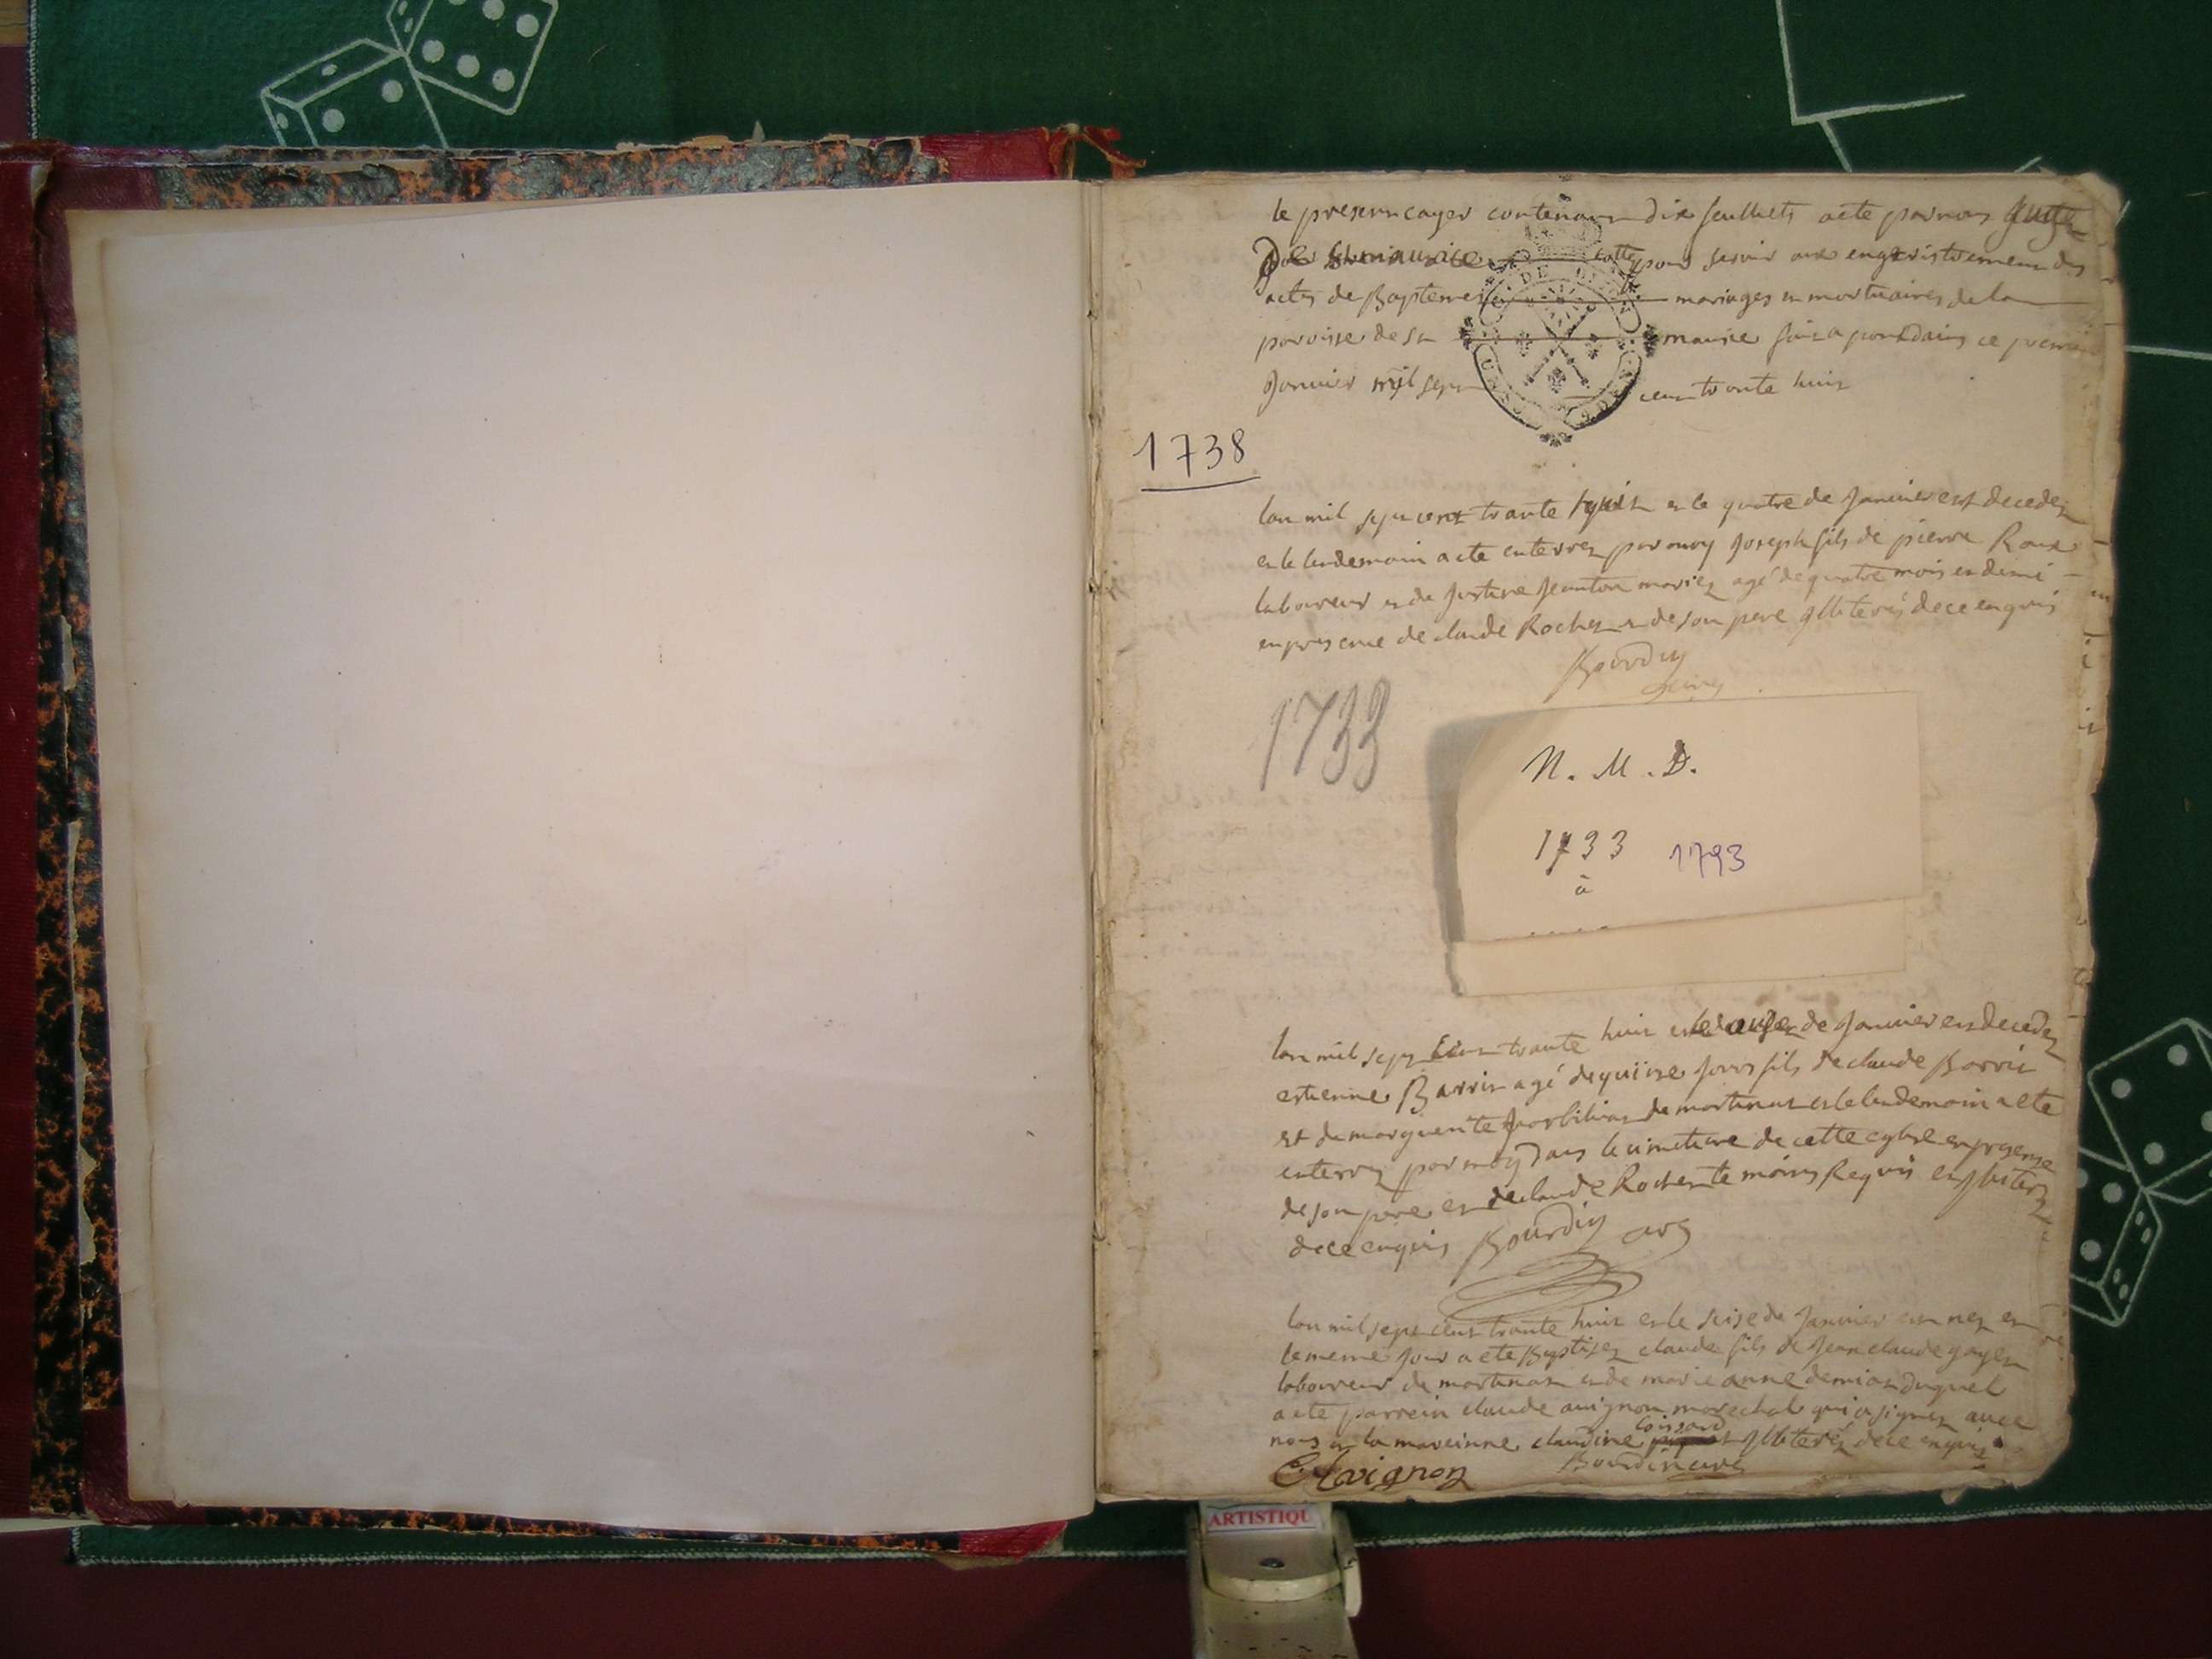 le present cayer contenant dix feulliets a ete par nous Juge
de St maurice cotte pour servir aux engregistrement des
actes de Baptemes mariages et mortuaires de la
paroisse de St maurice fait a pontDains ce premier
Janvier mil sept cent trante huit
1738
lan mil sept cent trante huit et le quatre de Janvier est decedez
et le lendemain a ete enterrez par moy Joseph fils de pierre Roux
laboureur et de Justine Jeanton mariez agé de quatre mois et demi
en presence de claude Rochet et de son pere Illiterés de ce enquis
Bourdin
curé
1733
N. M. D.
1733 1793
à
lan mil sept Cent trante huit et le de Janvier est decedez
estienne Barrin agé de quinze Jours fils de claude Barrin
et de marguerite de martinat et le lendemain a ete
enterrez par moy Dans le cimetiere de cette eglise en presence
de son pere et de claude Rochet temoins Requis et Illiterez
de ce enquis Bourdin curé
lan mil sept cent trante huit et le seise de Janvier est nez et
le meme Jour a ete Baptisez claude fils de Jean claude gayet
laboureur de martinat et de marie anne demiat duquel
a ete parrein claude avignon marechal qui a signez avec
nous et la mareinne claudine Coissard Illiterés de ce enquis
C. Avignon Bourdin curé
ARTISTIQU